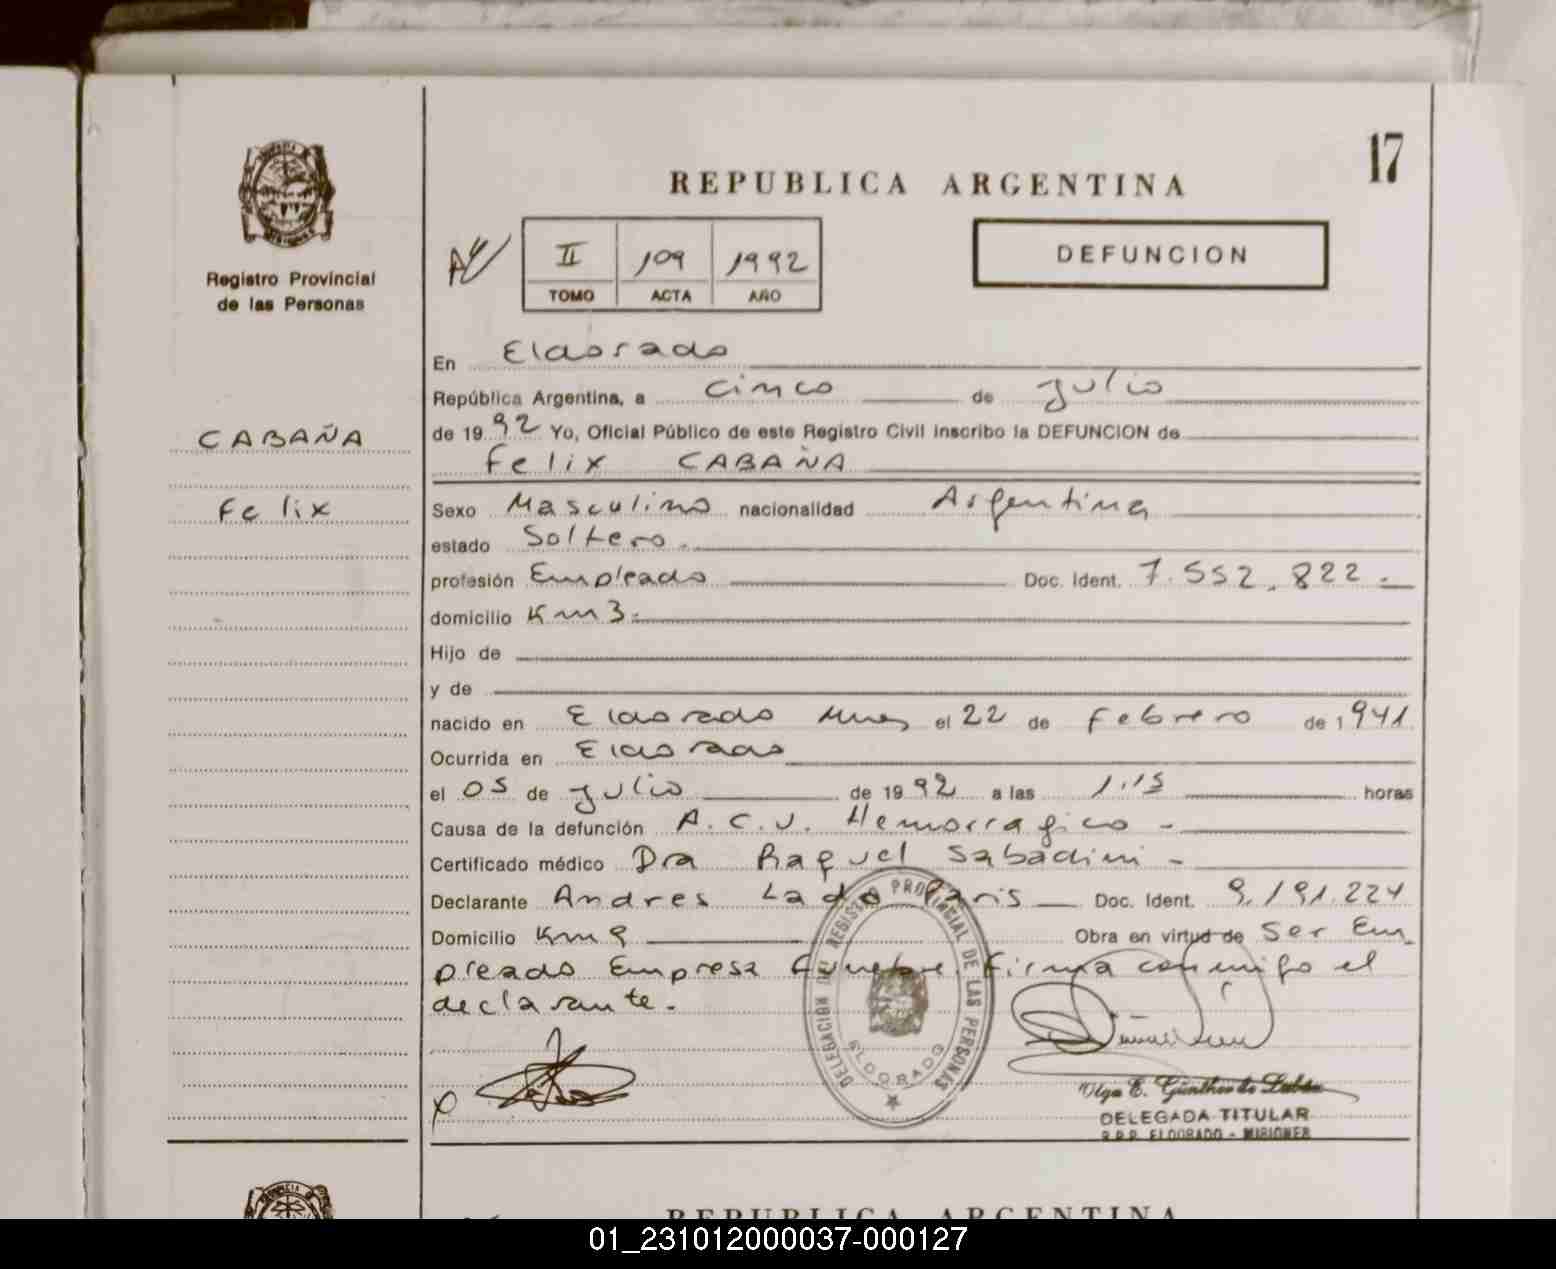 17
REPUBLICA ARGENTINA
Registro Provincial
de las Personas
II 109 1992
TOMO ACTA AÑO
DEFUNCION
CABAÑA
Felix
En Eldorado
República Argentina, a cinco de Julio
de 1992 Yo, Oficial Público de este Registro Civil inscribo la DEFUNCION de
Felix CABAÑA
Sexo Masculino nacionalidad Argentina
estado Soltero.
profesión Empleado Doc. Ident. 7.552.822.-
domicilio Km 3.
Hijo de
y de
nacido en Eldorado el 22 de Febrero de 1941
Ocurrida en Eldorado
el 05 de Julio de 1992 a las 1.15 horas
Causa de la defunción A.C.V. Hemorragico -
Certificado médico Dra Raquel Sabadini -
Declarante Andres Paris Doc. Ident. 9.191.224
Domicilio Km 9 Obra en virtud de Ser Em
pleado Empresa Funebre. Firma conmigo el
declarante.-
DELEGACION DEL REGISTRO PROVINCIAL DE LAS PERSONAS
ELDORADO
Olga E. Günther de
DELEGADA TITULAR
R.P.P. ELDORADO - MISIONES
REPUBLICA ARGENTINA
01_231012000037-000127